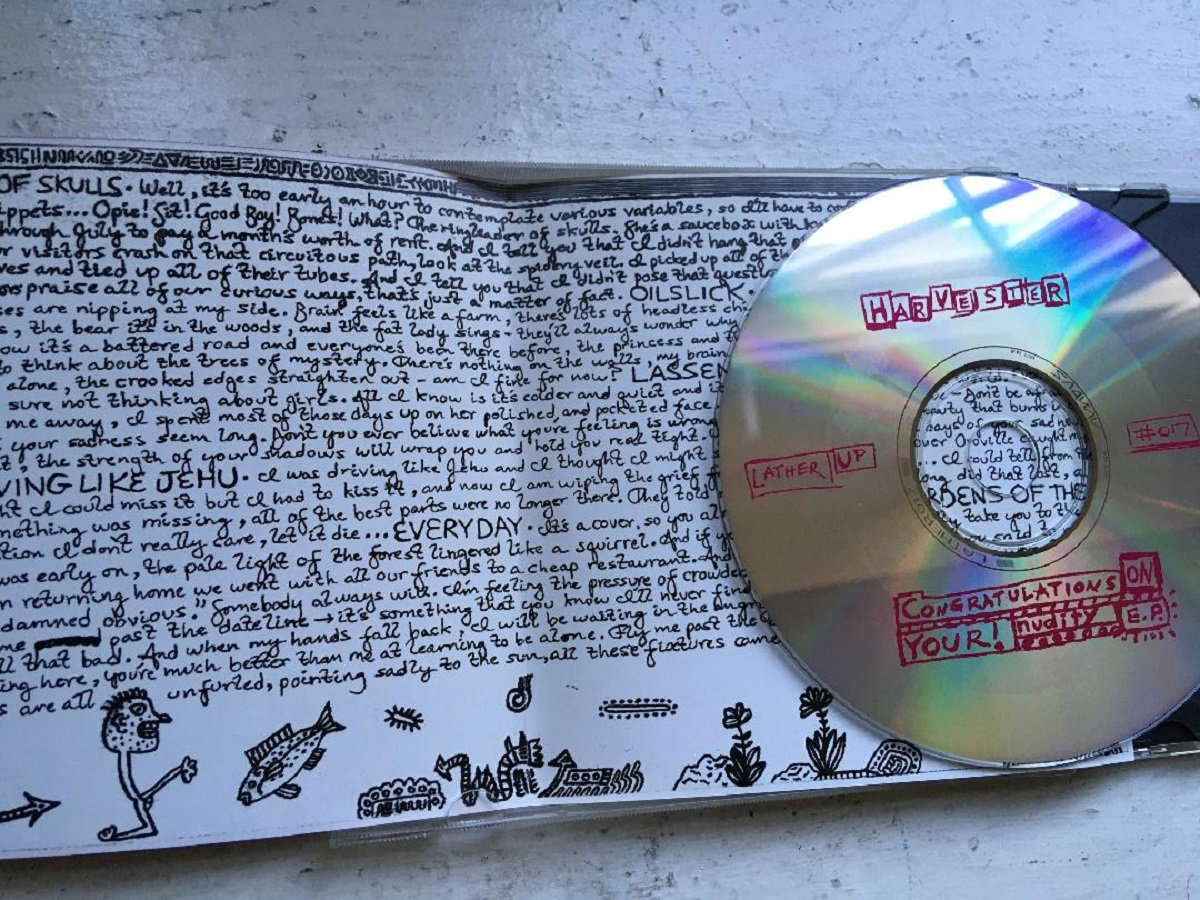 OF SKULLS. Well, it's too early an hour to contemplate various variables, so I'll have to
ppets... Opie! Sit! Good Boy! Bones! What? The ringleader of skulls. She's a saucebox with
hrough July to pay a month's worth of rent. And I tell you that I didn't hang that
r visitors crash on that circuitous path, look at the spidery veil. I picked up all of the
ves and tied up all of their tubes. And I tell you that I didn't pose that question
praise all of our curious ways, that's just a matter of fact. OILSLICK.
ses are nipping at my side. Brain feels like a farm, there's lots of headless
s, the bear its in the woods, and the fat lady sings - they'll always wonder why
ow it's a battered road and everyone's been there before, the princess and
o think about the trees of mystery. There's nothing on the walls, my brain
alone, the crooked edges straighten out - am I fine for now? LASSEN
sure not thinking about girls. All I know is it's colder and quiet and
me away, I spent most of those days up on her polished, and pocketed face
your sadness seem long. Don't you ever believe what you're feeling is wrong
t, the strength of your shadows will wrap you and hold you real tight.
VING LIKE JEHU. I was driving like Jehu and I thought I might
ht I could miss it but I had to kiss it, and now I am wiping the grief
mething was missing, all of the best parts were no longer there. They told
tion I don't really care, let it die... EVERYDAY. It's a cover, so you
was early on, the pale light of the forest lingered like a squirrel. And if
n returning home we went with all our friends to a cheap restaurant. And
damned obvious." Somebody always will. I'm feeling the pressure of crowded
me past the dateline → it's something that you know I'll never find
ll that bad. And when my hands fall back, I will be waiting in the
ing here, you're much better than me at learning to be alone. Fly me past the
s are all unfurled, pointing sadly to the sun, all these fixtures came
HARVESTER
LATHER UP
#017
CONGRATULATIONS ON
YOUR! nudity E.P.
Don't be
that burns
days of your sadness
over Oroville
I could tell from
long did that last,
RDENS OF TH
take you to